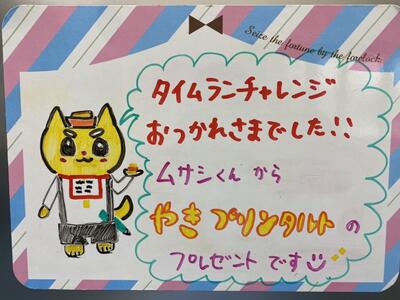 Seize the fortune by the forelock.
タイムランチャレンジ
おつかれさまでした!!
ムサシくん から
やきプリンタルト の
プレゼント です